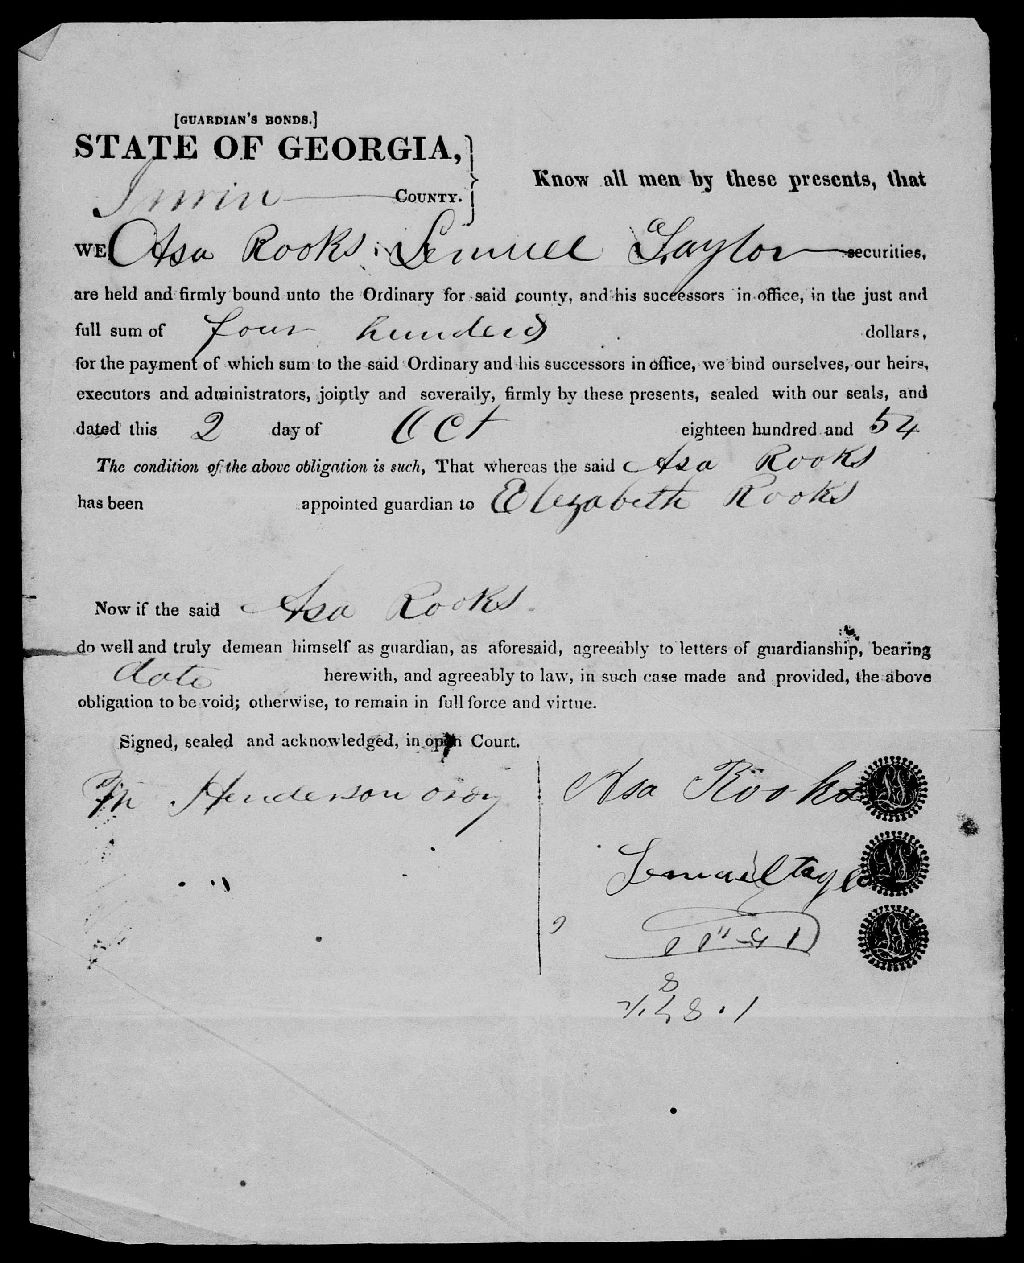 [GUARDIAN'S BONDS.]
STATE OF GEORGIA,
Irwin COUNTY.
Know all men by these presents, that
WE Asa Rooks Lemuel Taylor securities,
are held and firmly bound unto the Ordinary for said county, and his successors in office, in the just and
full sum of four hunderd dollars,
for the payment of which sum to the said Ordinary and his successors in office, we bind ourselves, our heirs,
executors and administrators, jointly and severally, firmly by these presents, sealed with our seals, and
dated this 2 day of Oct eighteen hundred and 54
The condition of the above obligation is such, That whereas the said Asa Rooks
has been appointed guardian to Elezabeth Rooks
Now if the said Asa Rooks
do well and truly demean himself as guardian, as aforesaid, agreeably to letters of guardianship, bearing
date herewith, and agreeably to law, in such case made and provided, the above
obligation to be void; otherwise, to remain in full force and virtue.
Signed, sealed and acknowledged, in open Court.
M Henderson ordy
Asa Rooks
Lemuel taylo